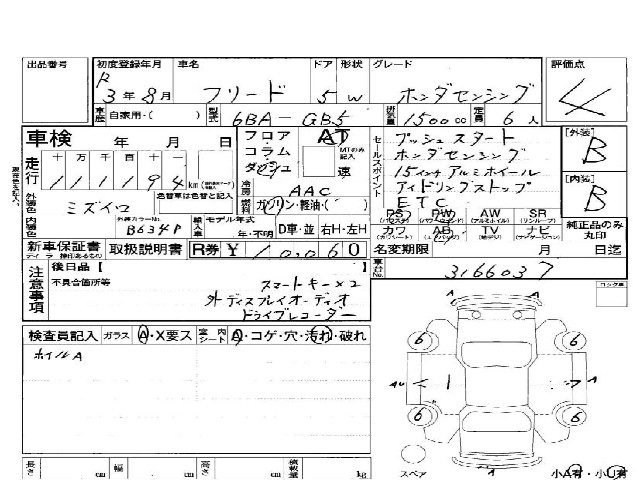 出品番号 初度登録年月 車名 ドア 形状 グレード 評価点
R3年8月 フリード 5 W ホンダセンシング 4
車歴 自家用・( ) 型式 6BA-GB5 排気量 1500cc 定員 6人
車検 年 月 日 フロア AT プッシュスタート [外装] B
走行 十 万 千 百 十 一 コラム MTのみ記入 ホンダセンシング
111194 km ダッシュ 速 セールスポイント 15インチアルミホイール [内装] B
外装色 ミズイロ 色替車は色替と記入 冷房 AAC アイドリングストップ
燃料 ガソリン・軽油・( ) ETC
内装色 外装カラーNo. B634P 輸入車 モデル年式 PS PW AW SR 純正品のみ丸印
年・不明 D車・並 右H・左H カワ AB TV ナビ
新車保証書 取扱説明書 R券 ¥10,060 名変期限 月 日迄
注意事項 後日品【 】 車台No. 3166037
不具合個所等 スマートキー×2
外ディスプレイオーディオ
ドライブレコーダー
検査員記入 ガラス A・X要ス 室内シート A・コゲ・穴・汚れ・破れ
ホイルA
6 6
6 6
長さ cm 幅 cm 高さ cm 積載量 kg スペア 小A有・小U有